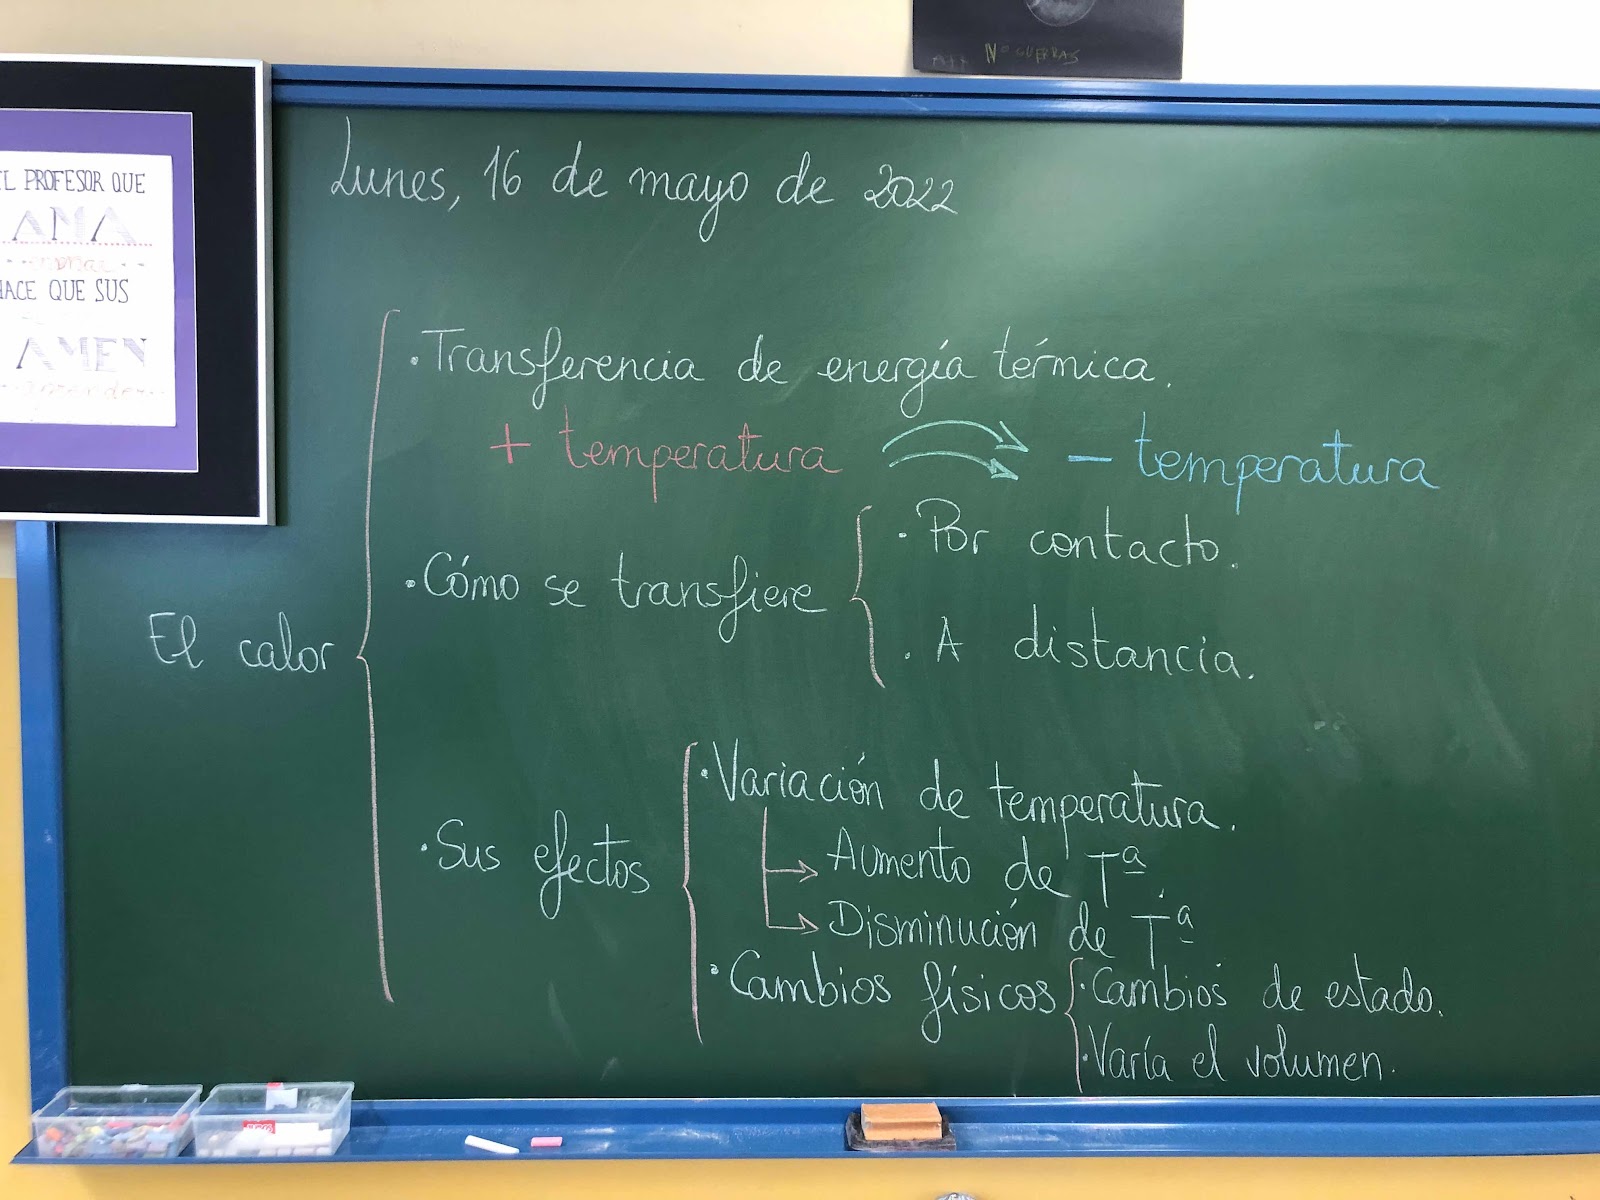 Nº GUERRAS
EL PROFESOR QUE
AMA
enseñar
HACE QUE SUS
AMEN
aprender
Lunes, 16 de mayo de 2022
El calor
· Transferencia de energía térmica.
+ temperatura → - temperatura
· Cómo se transfiere
· Por contacto.
· A distancia.
· Sus efectos
· Variación de temperatura.
→ Aumento de Tª.
→ Disminución de Tª
· Cambios físicos
· Cambios de estado.
· Varía el volumen.